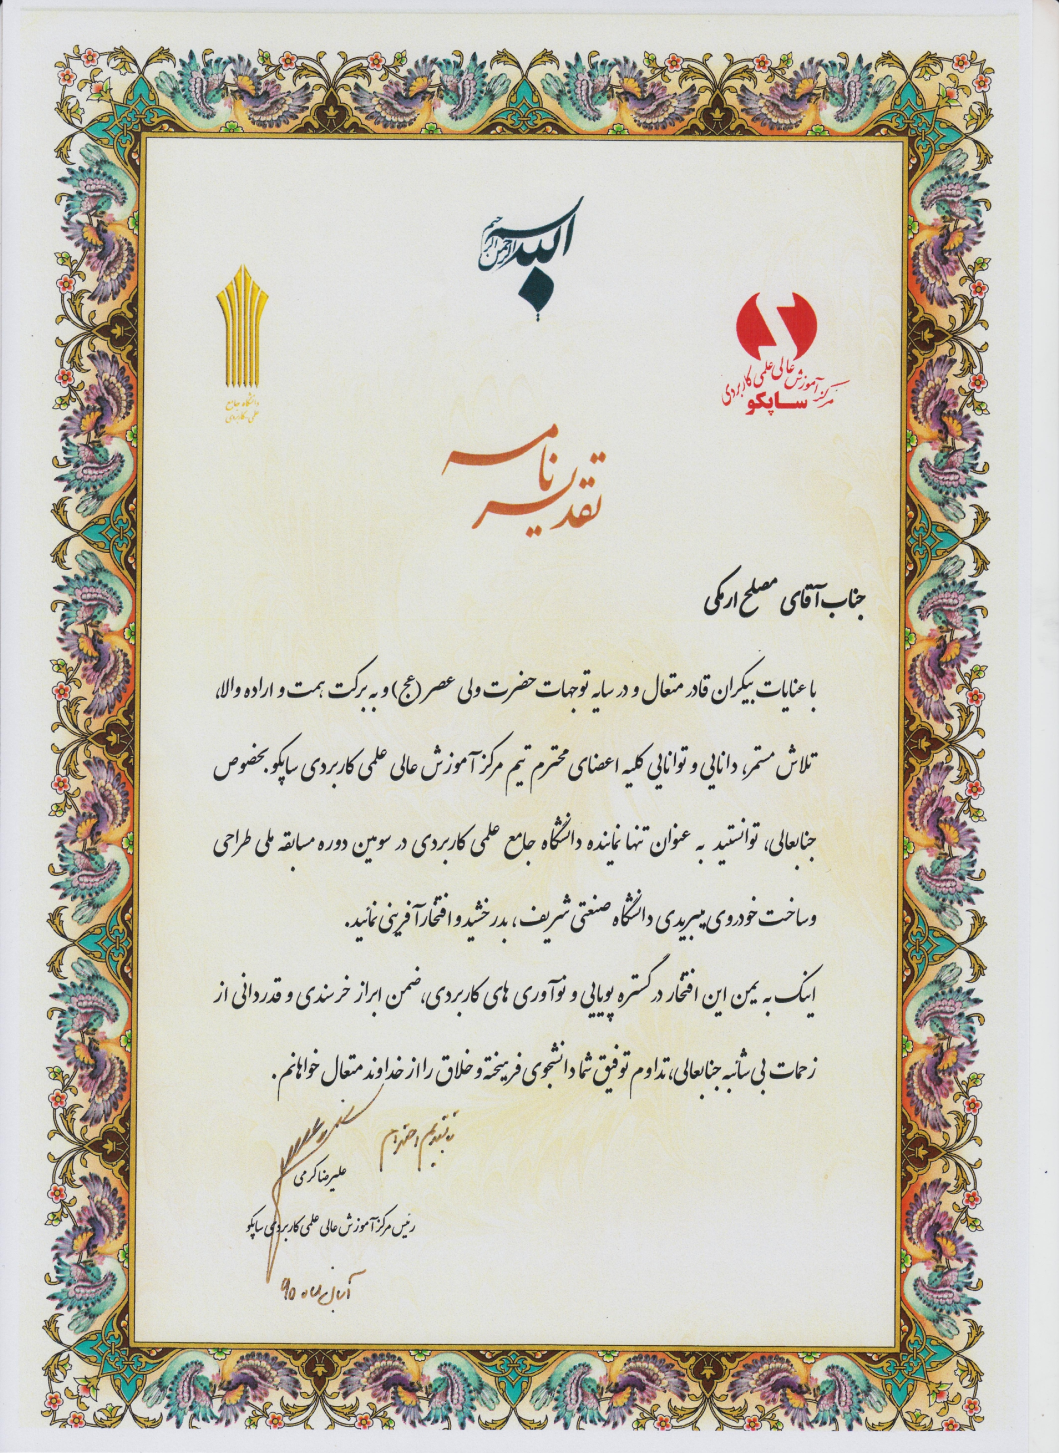 بسم الله الرحمن الرحیم
دانشگاه جامع
علمی کاربردی
مرکز آموزش عالی علمی کاربردی
ساپکو
تقدیرنامه
جناب آقای مصلح ارمکی
با عنایات بیکران قادر متعال و در سایه توجهات حضرت ولی عصر (عج) و به برکت همت و اراده والا،
تلاش مستمر، دانایی و توانایی کلیه اعضای محترم تیم مرکز آموزش عالی علمی کاربردی ساپکو بخصوص
جنابعالی، توانستید به عنوان تنها نماینده دانشگاه جامع علمی کاربردی در سومین دوره مسابقه ملی طراحی
و ساخت خودروی هیبریدی دانشگاه صنعتی شریف، بدرخشید و افتخارآفرینی نمائید.
اینک به یمن این افتخار در گستره پویایی و نوآوری های کاربردی، ضمن ابراز خرسندی و قدردانی از
زحمات بی شائبه جنابعالی، تداوم توفیق شما دانشجوی فرهیخته و خلاق را از خداوند متعال خواهانم.
با تقدیم احترام
علیرضا کرمی
رئیس مرکز آموزش عالی علمی کاربردی ساپکو
آبان ماه ۹۰